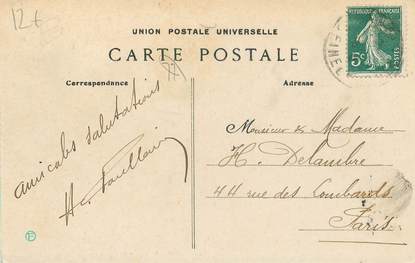 12€
UNION POSTALE UNIVERSELLE
CARTE POSTALE
Correspondance
Adresse
REPUBLIQUE FRANÇAISE
5c
POSTES
amicales salutations
Monsieur & Madame
H. Delambre
44 rue des Lombards
Paris